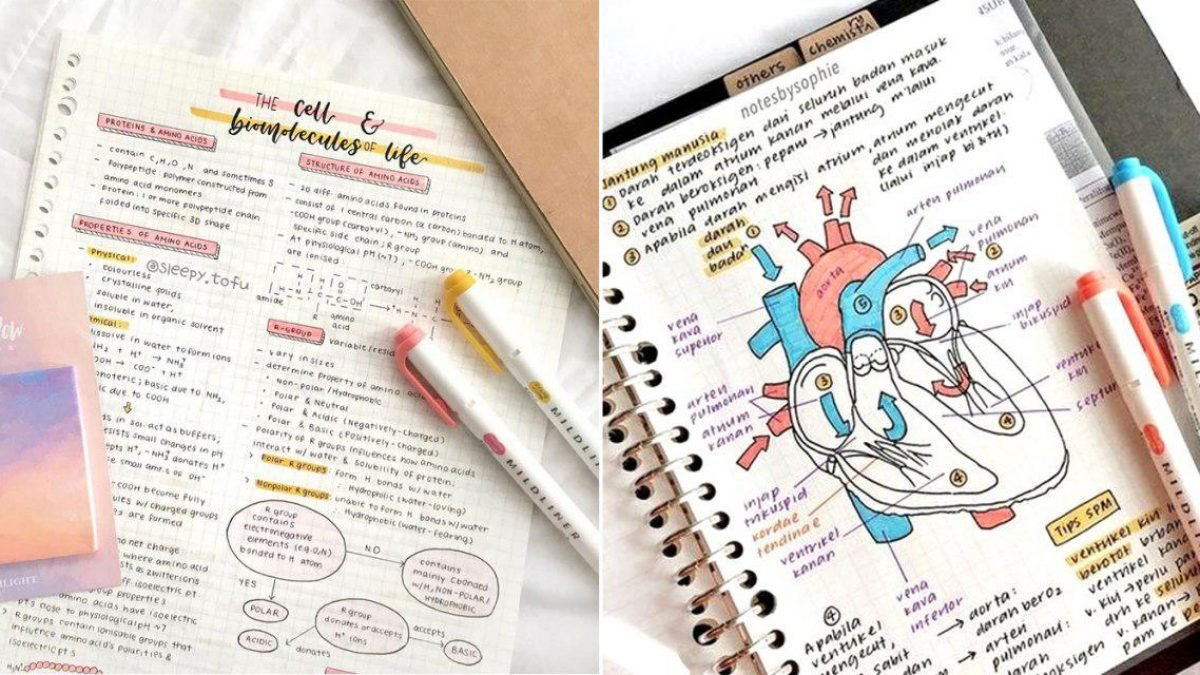 THE cell &
biomolecules OF life
PROTEINS & AMINO ACIDS
- contain C,H,O,N and sometimes S
- Polypeptide: polymer constructed from
amino acid monomers
- Protein: 1 or more polypeptide chain
folded into specific 3D shape
PROPERTIES OF AMINO ACIDS
Physical:
@sleepy.tofu
colourless
crystalline solids
soluble in water,
insoluble in organic solvent
dissolve in water to form ions
NH₂ + H⁺ → NH₃⁺
COOH → COO⁻ + H⁺
basic due to NH₂,
due to COOH
in sol. act as buffers;
small changes in pH
-NH₃⁺ donates H⁺
small amts of OH⁻
COOH become fully
w/ charged groups
are formed
net charge
where amino acid
as zwitterions
isoelectric pt
group properties
amino acids have isoelectric
pts close to physiological pH ~7
R groups contain ionisable groups that
influence amino acid's polarities &
isoelectric pts
STRUCTURE OF AMINO ACIDS
- 20 diff. amino acids found in proteins
- consist of 1 central carbon (α carbon) bonded to H atom,
-COOH group (carboxyl), -NH₂ group (amino) and
specific side chain; R group
- At physiological pH (~7), -COOH group & -NH₂ group
are ionised
carboxyl
amide
R
amino
acid
R-GROUP
- vary in sizes
- determine property of amino
• Non-polar / Hydrophobic
• Polar & Neutral
• Polar & Acidic (Negatively-Charged)
• Polar & Basic (Positively-Charged)
- Polarity of R groups influences how amino acids
interact w/ water & solubility of protein:
Polar R groups: form H bonds w/ water
∴ Hydrophilic (water-loving)
Nonpolar R groups: unable to form H bonds w/ water
∴ Hydrophobic (water-fearing)
R group
contains
electronegative
elements (e.g. O,N)
bonded to H atom
NO
contains
mainly C bonded
w/ H, NON-POLAR /
HYDROPHOBIC
YES
POLAR
R group
donates or accepts
H⁺ ions
ACIDIC
donates
accepts
BASIC
MILDLINER
others
chemistry
notesbysophie
jantung manusia
① Darah terdeoksigen dari seluruh badan masuk
ke dalam atrium kanan melalui vena kava.
② Darah beroksigen: pepanu → jantung m'lalui
vena pulmonari
③ Apabila darah mengisi atrium, atrium mengecut
dan menolak darah
ke dalam ventrikel.
(lalui injap bi & tri)
darah
dari
badan
①
arteri pulmonari
vena
pulmonari
②
aorta
⑤
atrium
kiri
③
vena
kava
superior
injap
bikuspid
ventrikel
kiri
arteri
pulmonari
atrium
kanan
③
septum
④
④
injap
trikuspid
kordae
tendinae
ventrikel
kanan
vena
kava
inferior
Tips SPM
ventrikel kiri
berotot
ventrikel
v. kiri → perlu
drh ke
v. kanan →
pam ke
④
Apabila
ventrikel
mengecut,
→ aorta:
darah berO₂
→ arteri
pulmonari:
darah
MILDLINER